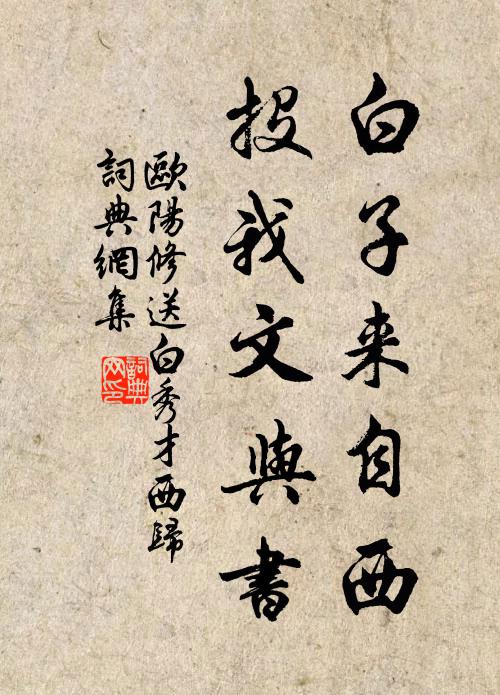 白子来自西
投我文與書
歐陽修送白秀才西歸
詞典網集
詞典
网印